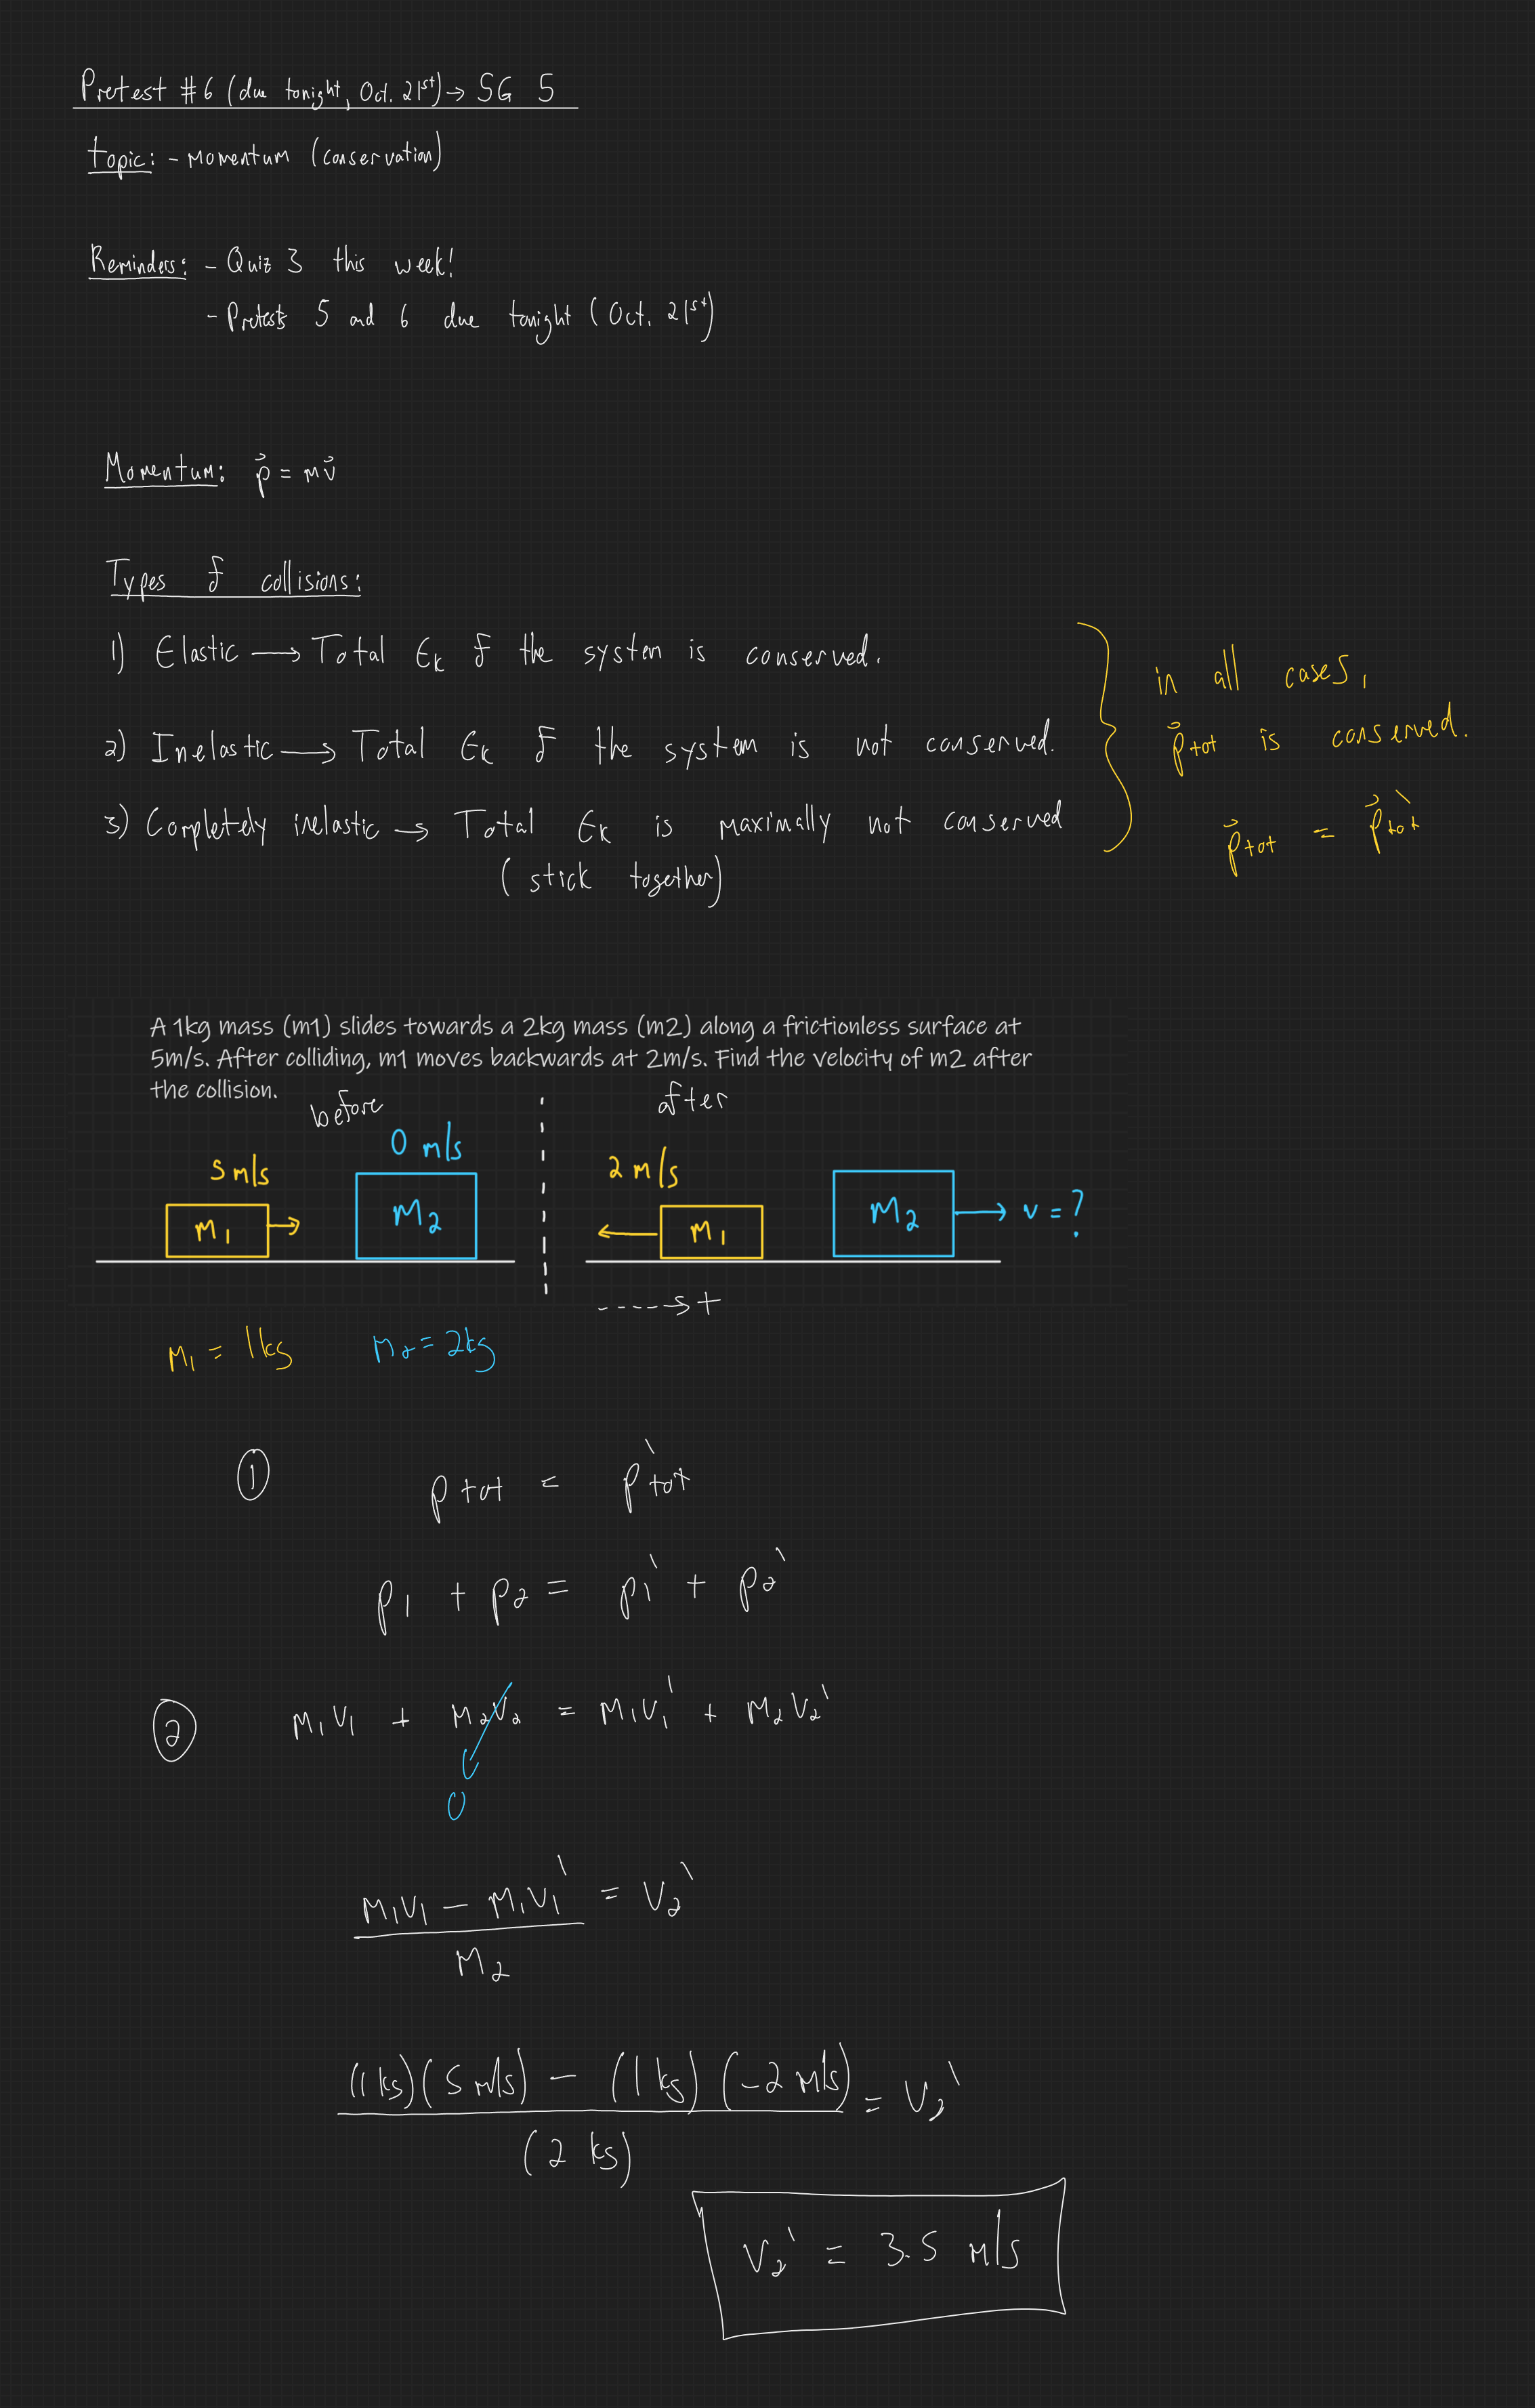 Pretest #6 (due tonight, Oct. 21st) → SG 5
topic: - Momentum (conservation)
Reminders: - Quiz 3 this week!
- Pretests 5 and 6 due tonight (Oct. 21st)
Momentum: p⃗ = mv⃗
Types of collisions:
1) Elastic → Total Ek of the system is conserved.
2) Inelastic → Total Ek of the system is not conserved.
3) Completely inelastic → Total Ek is maximally not conserved
(stick together)
in all cases,
p⃗tot is conserved.
p⃗tot = p⃗tot'
A 1kg mass (m1) slides towards a 2kg mass (m2) along a frictionless surface at
5m/s. After colliding, m1 moves backwards at 2m/s. Find the velocity of m2 after
the collision.
before
5 m/s
0 m/s
m1
m2
after
2 m/s
m1
m2
v = ?
----→ +
m1 = 1kg
m2 = 2kg
① ptot = ptot'
p1 + p2 = p1' + p2'
② m1v1 + m2v2 = m1v1' + m2v2'
0
m1v1 - m1v1' = v2'
m2
(1 kg)(5 m/s) - (1 kg)(-2 m/s) = v2'
(2 kg)
v2' = 3.5 m/s